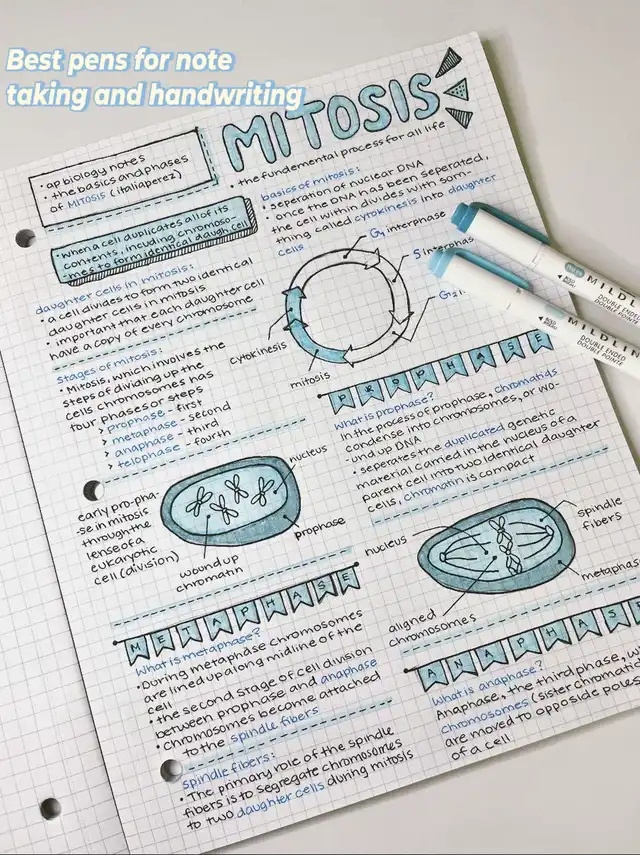 Best pens for note
taking and handwriting
MITOSIS
• the fundamental process for all life
• ap biology notes
• the basics and phases
of MITOSIS (italiaperez)
• When a cell duplicates all of its
contents, incuding chromoso-
mes to form identical daugh.cell
daughter cells in mitosis:
• a cell divides to form two identical
daughter cells in mitosis
• important that each daughter cell
have a copy of every chromosome
stages of mitosis:
• Mitosis, which involves the
steps of dividing up the
cells chromosomes has
four phases or steps
> prophase - first
> metaphase - second
> anaphase - third
> telophase - fourth
basics of mitosis:
• seperation of nuclear DNA
• once the DNA has been seperated,
the cell within divides with som-
thing called cytokinesis into daughter
cells
G1 interphase
S interphas
G2
cytokinesis
mitosis
MILDL
DOUBLE ENDED
DOUBLE POINTE
MILDLIN
DOUBLE ENDED
DOUBLE POINTE
PROPHASE
What is prophase?
In the process of prophase, chromatids
condense into chromosomes, or wo-
und up DNA
• seperates the duplicated genetic
material carried in the nucleus of a
parent cell into two identical daughter
cells, chromatin is compact
early pro-pha-
se in mitosis
through the
lense of a
eukaryotic
cell (division)
nucleus
prophase
wound up
chromatin
nucleus
spindle
fibers
metaphas
aligned
chromosomes
METAPHASE
What is metaphase?
• During metaphase chromosomes
are lined up along midline of the
cell
• the second stage of cell division
between prophase and anaphase
• Chromosomes become attached
to the spindle fibers
spindle fibers:
• The primary role of the spindle
fibers is to segregate chromosomes
to two daughter cells during mitosis
ANAPHAS
What is anaphase?
Anaphase, the third phase, w
chromosomes (sister chromat
are moved to opposide poles
of a cell